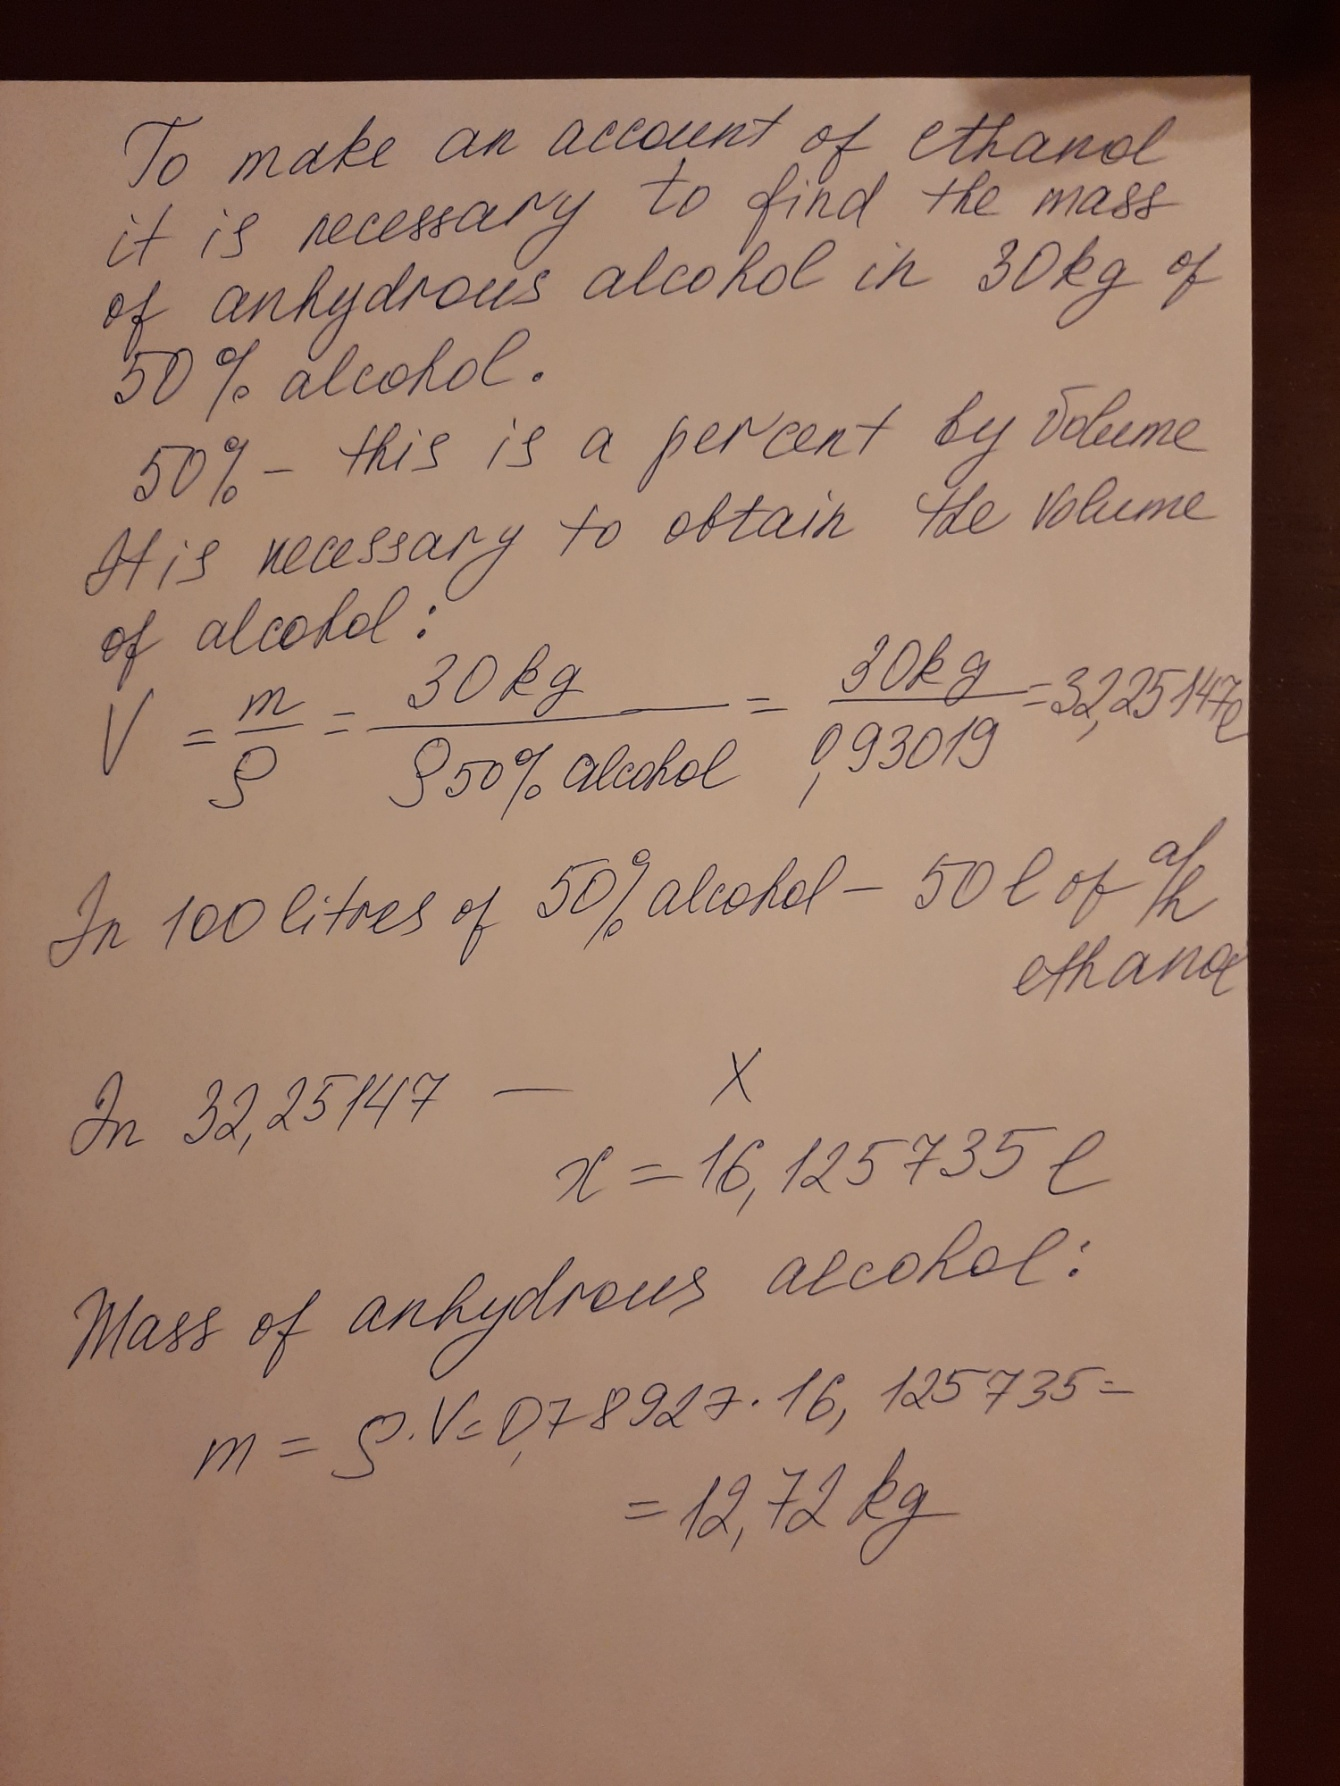 To make an account of ethanol
it is necessary to find the mass
of anhydrous alcohol in 30kg of
50% alcohol.
50% - this is a percent by volume
It is necessary to obtain the volume
of alcohol:
V = m/ρ = 30kg/ρ50% alcohol = 30kg/0,93019 = 32,25147l
In 100 litres of 50% alcohol - 50 l of a/h
ethanol
In 32,25147 — X
x = 16,125735 l
Mass of anhydrous alcohol:
m = ρ·V = 0,78927·16,125735 =
= 12,72 kg